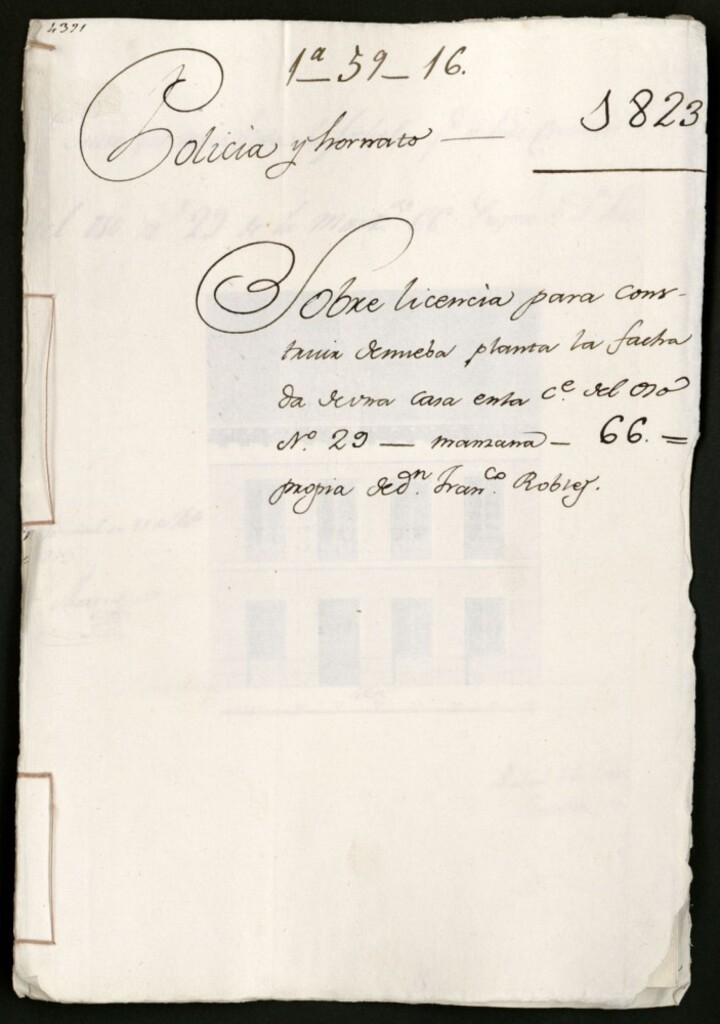 4371
1ª 59_16.
Policia y hornato — 1823
Sobre licencia para cons-
truir denueba planta la facha
da deuna casa enla C.e del Oso
N.º 29 — manzana — 66. =
propia de d.n Fran.co Robles.